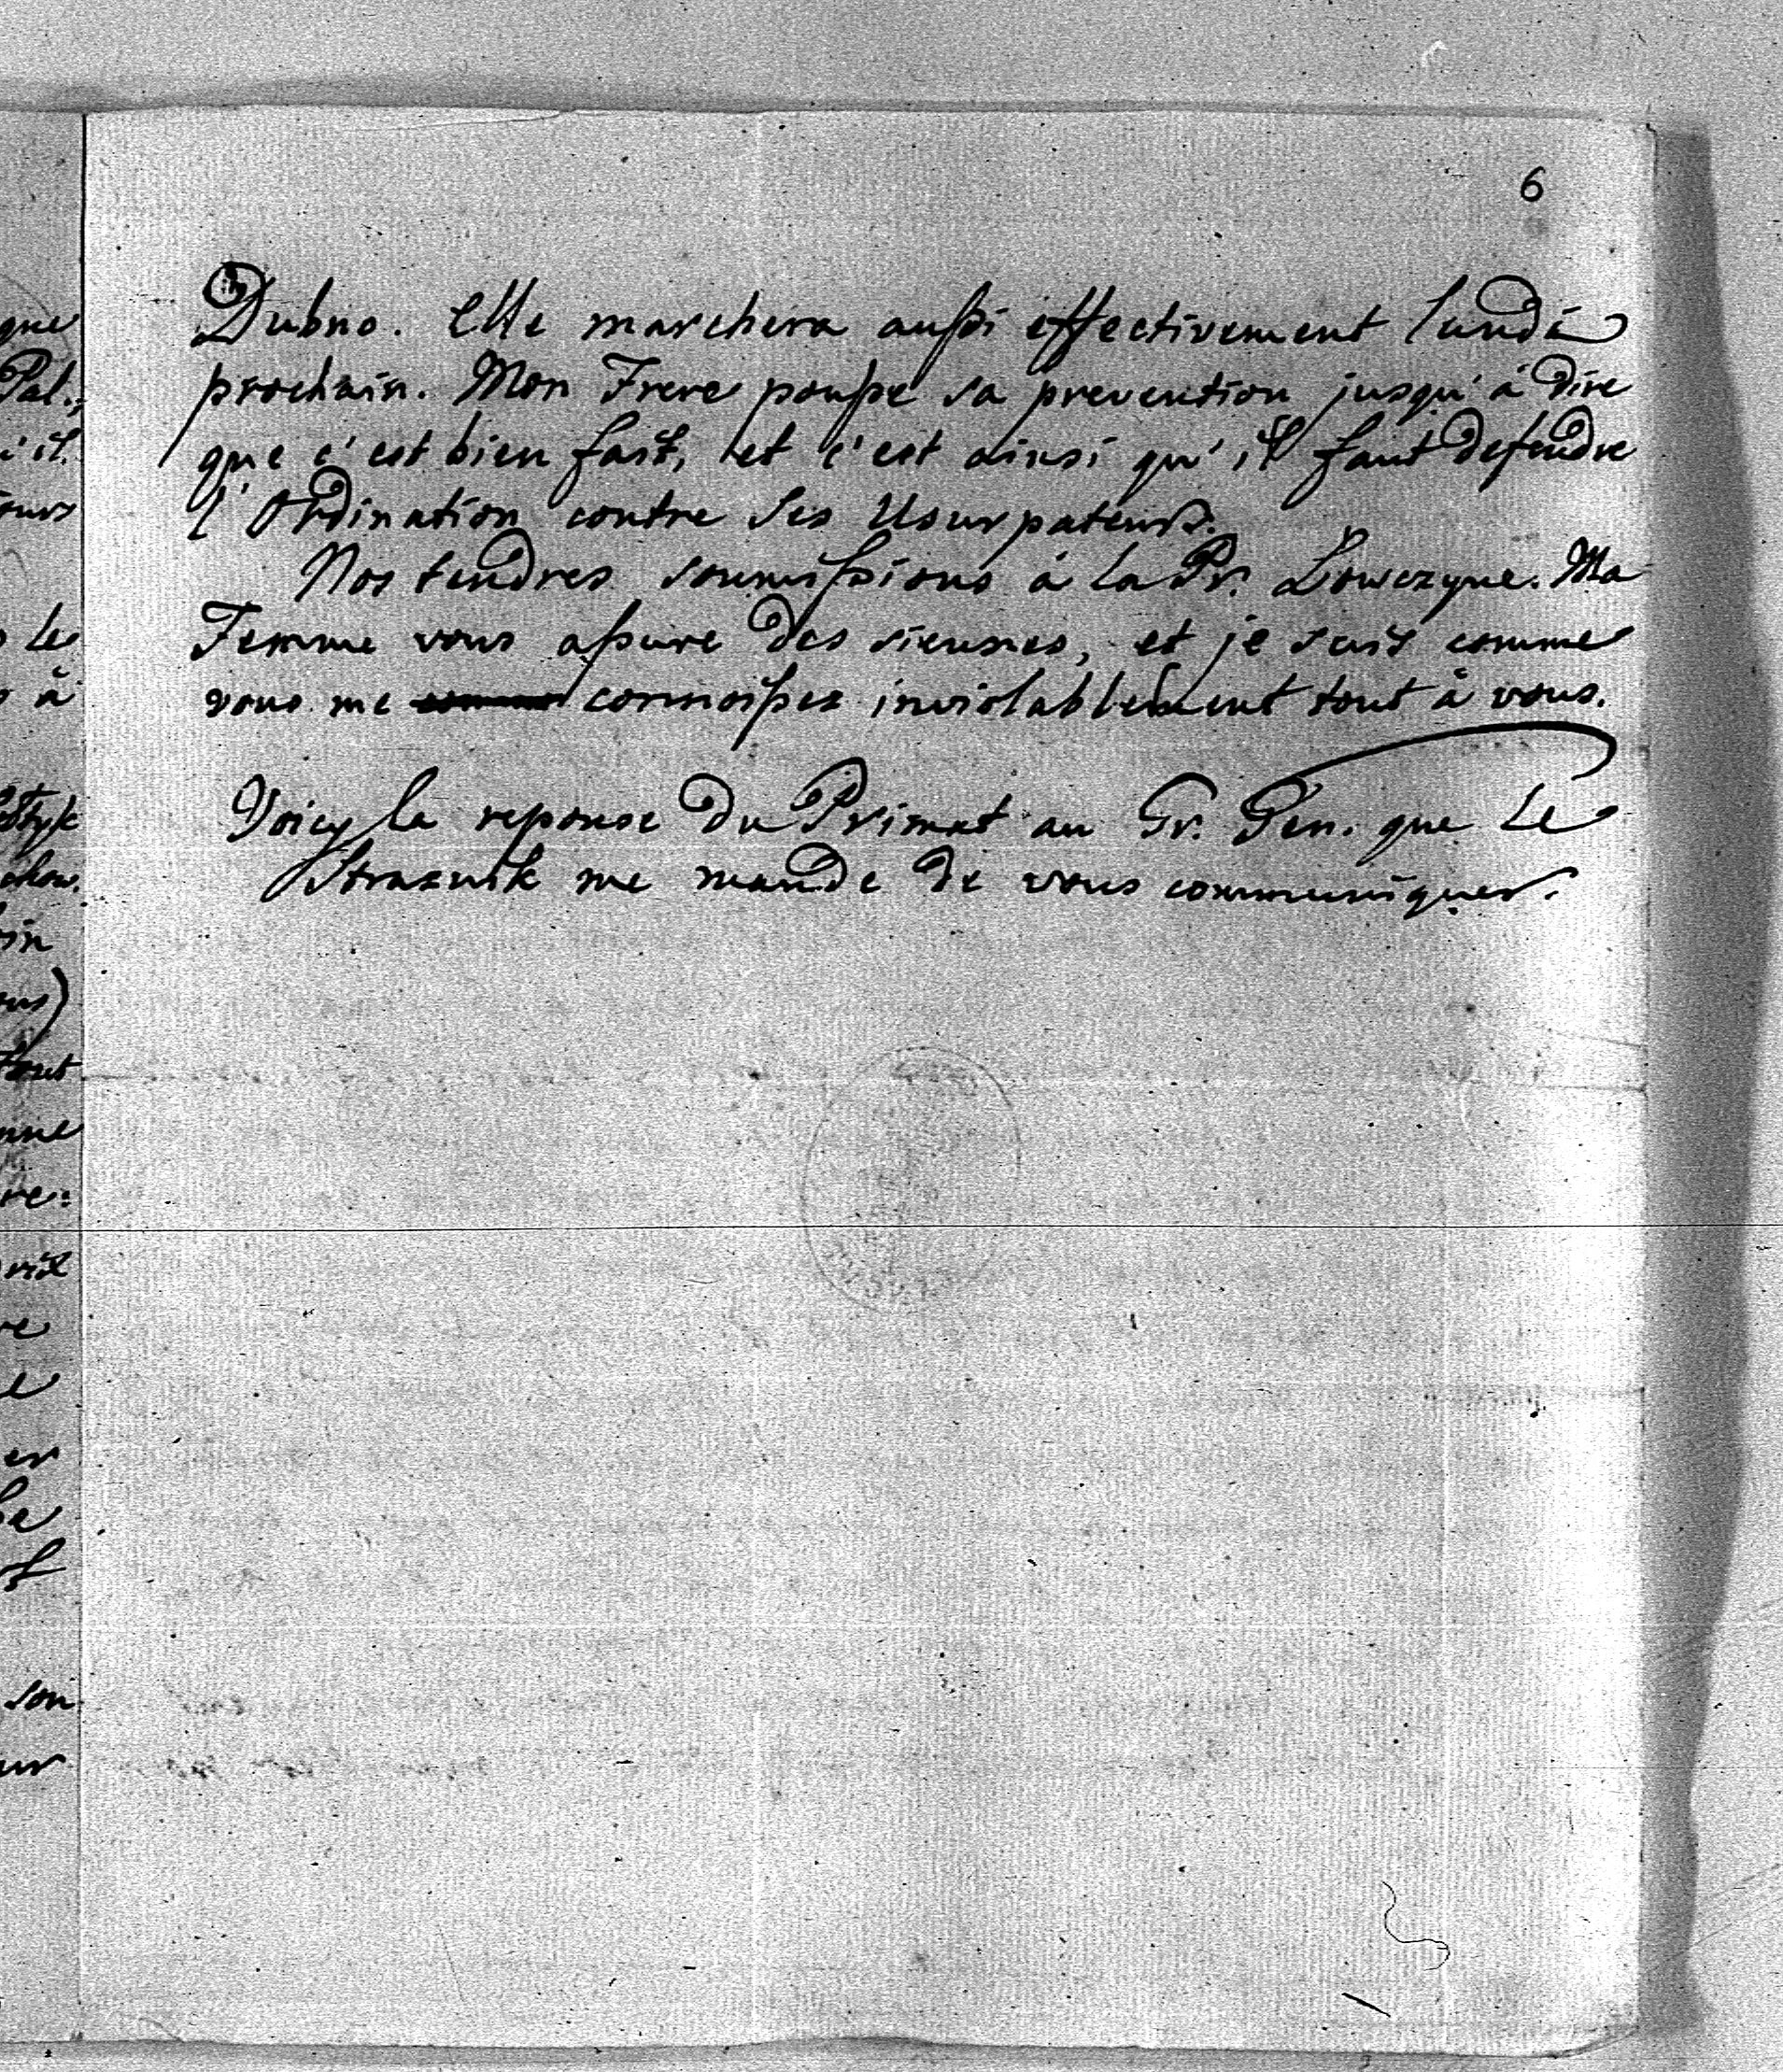 6
Dubno. Elle marchera aussi effectivement lundi
prochain. Mon Frere pousse sa prevention jusqu'à dire
que c'est bien fait, et c'est ainsi qu'il faut defendre
l'Ordination contre ses Usurpateurs.
Nos tendres soumissions à la Pr. Łowczyne. Ma
Femme vous assure des siennes, et je suis comme
vous me connoissez inviolablement tout à vous.
Voicy la reponse du Primat au Gr. Gen. que le
Straznik me mande de vous communiquer.
que
Pal.,
le
à
ohow.
tout
re:
er
son